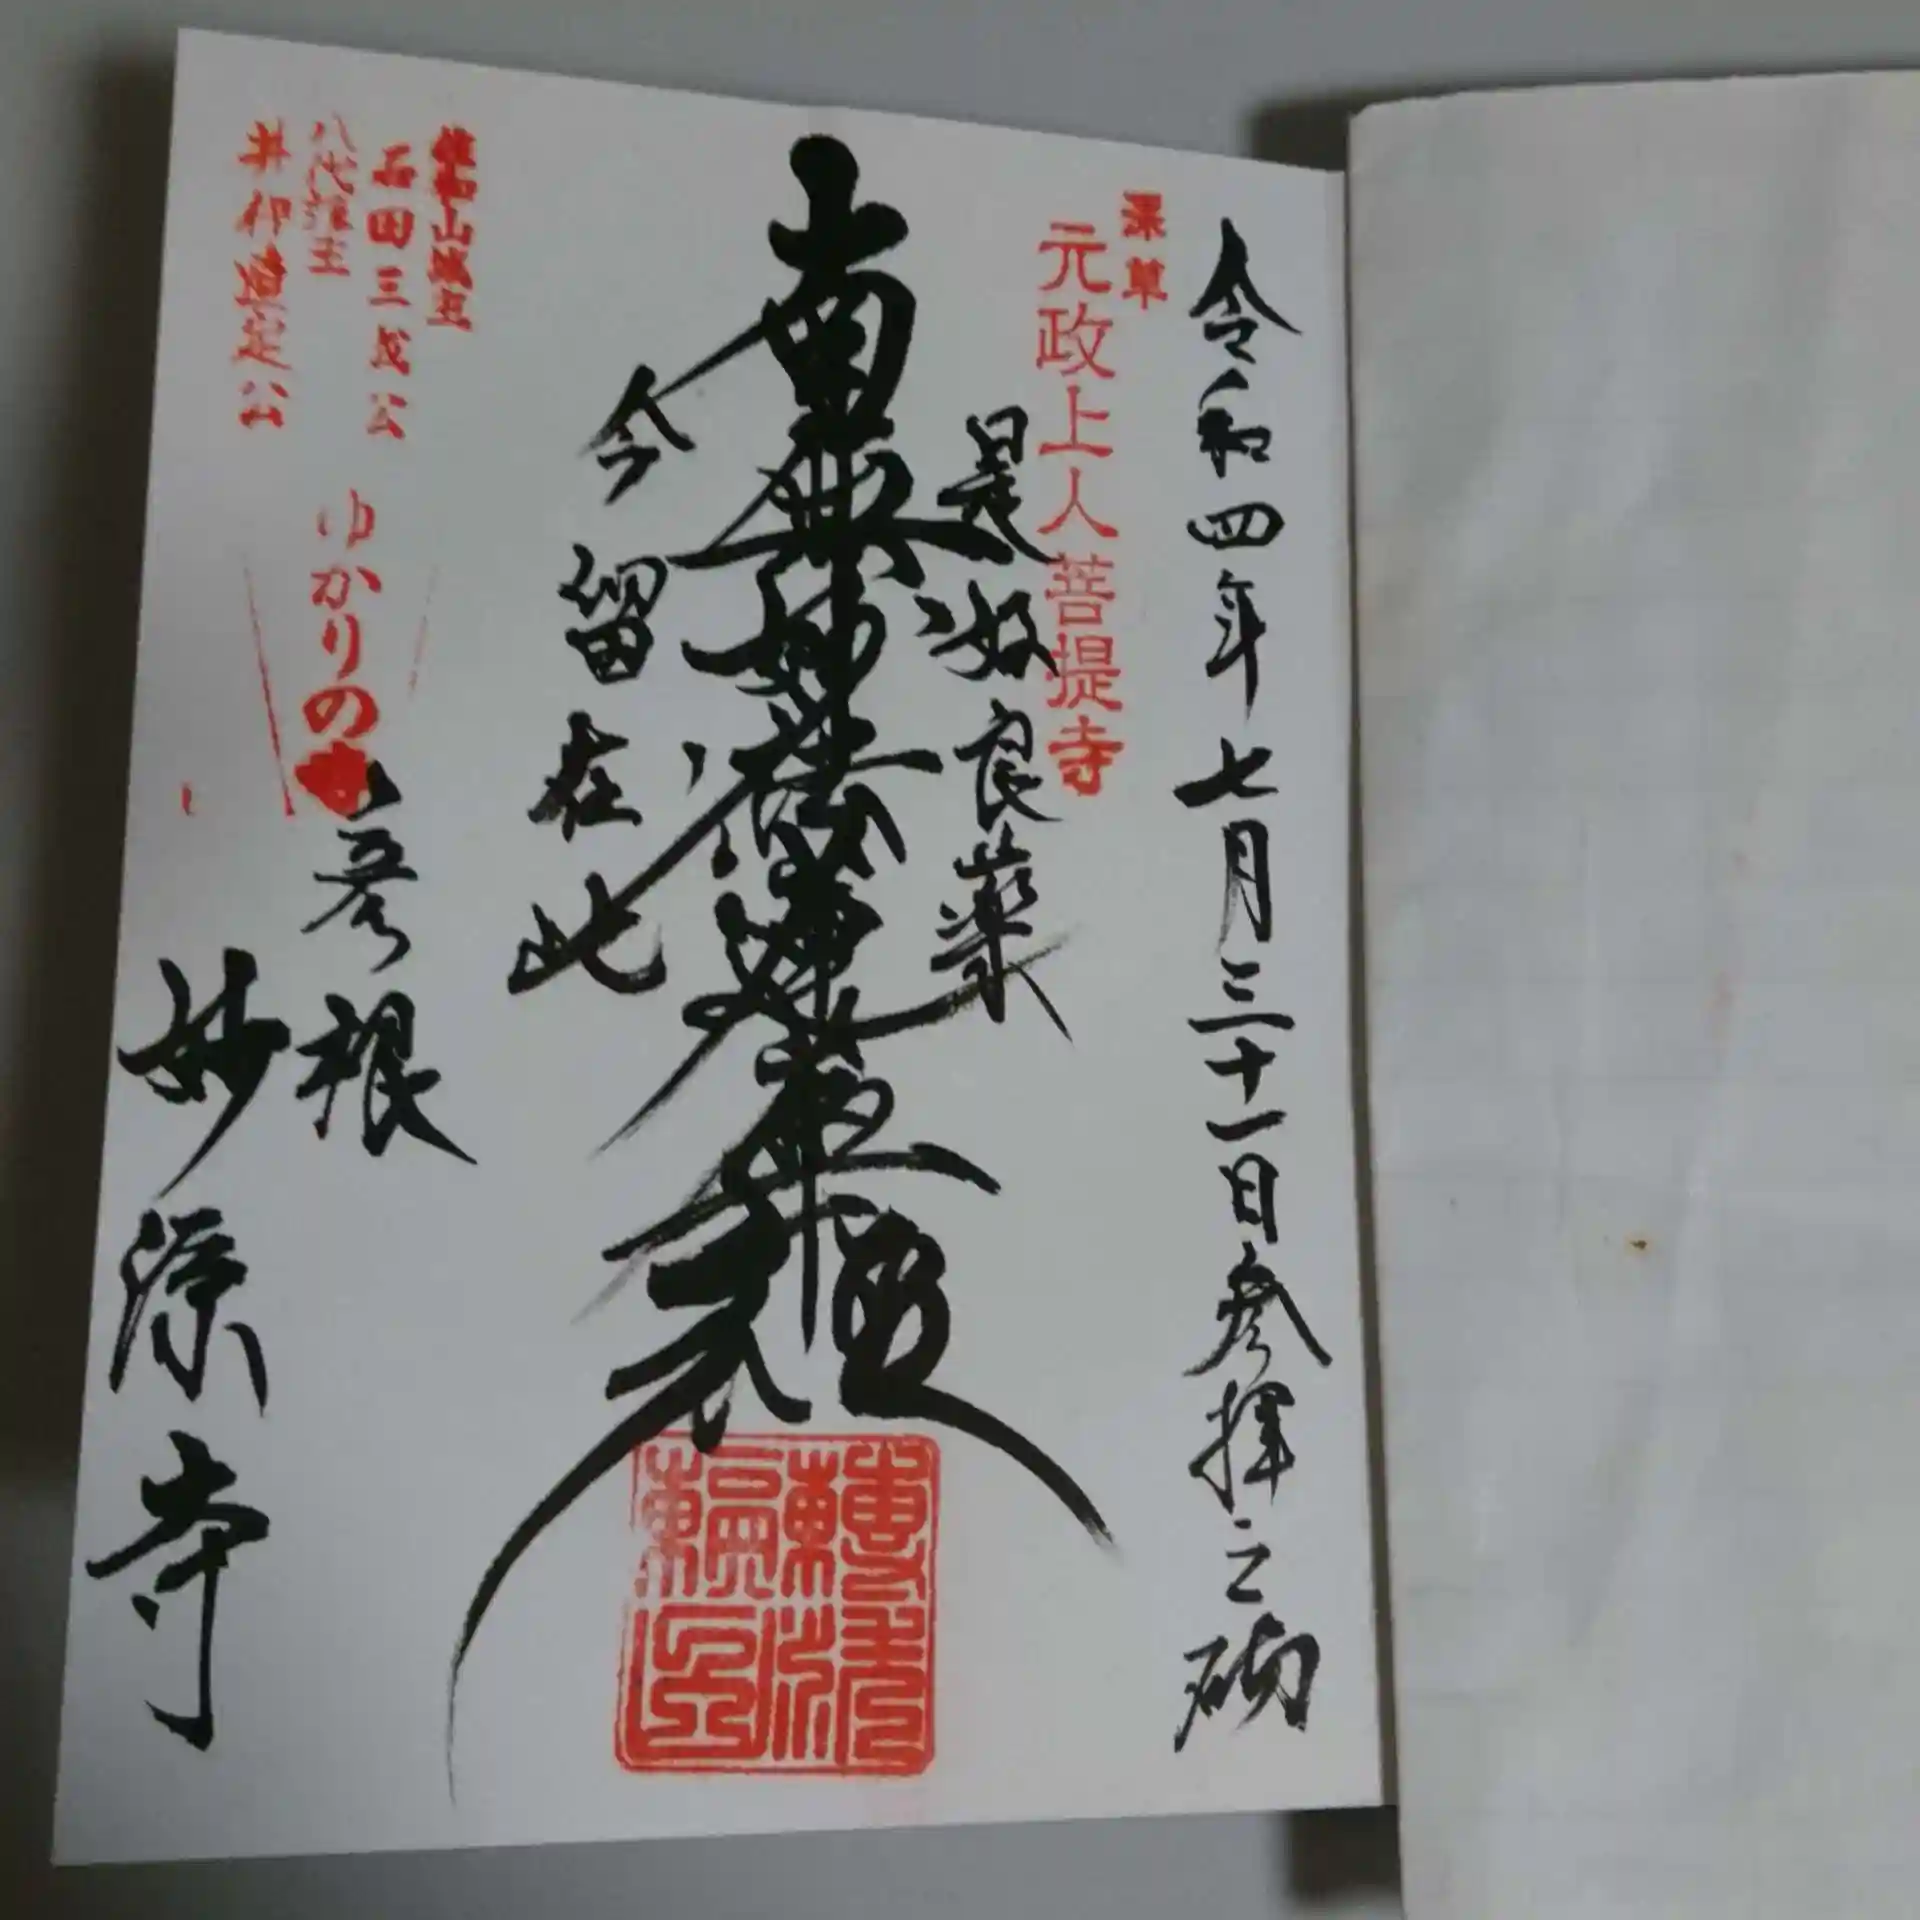 令和四年七月三十一日参拝之砌
深草
元政上人菩提寺
是好良薬
南無妙法蓮華経
今留在此
佐和山城主
石田三成公
八代藩主
井伊直定公
ゆかりの寺
彦根
妙源寺